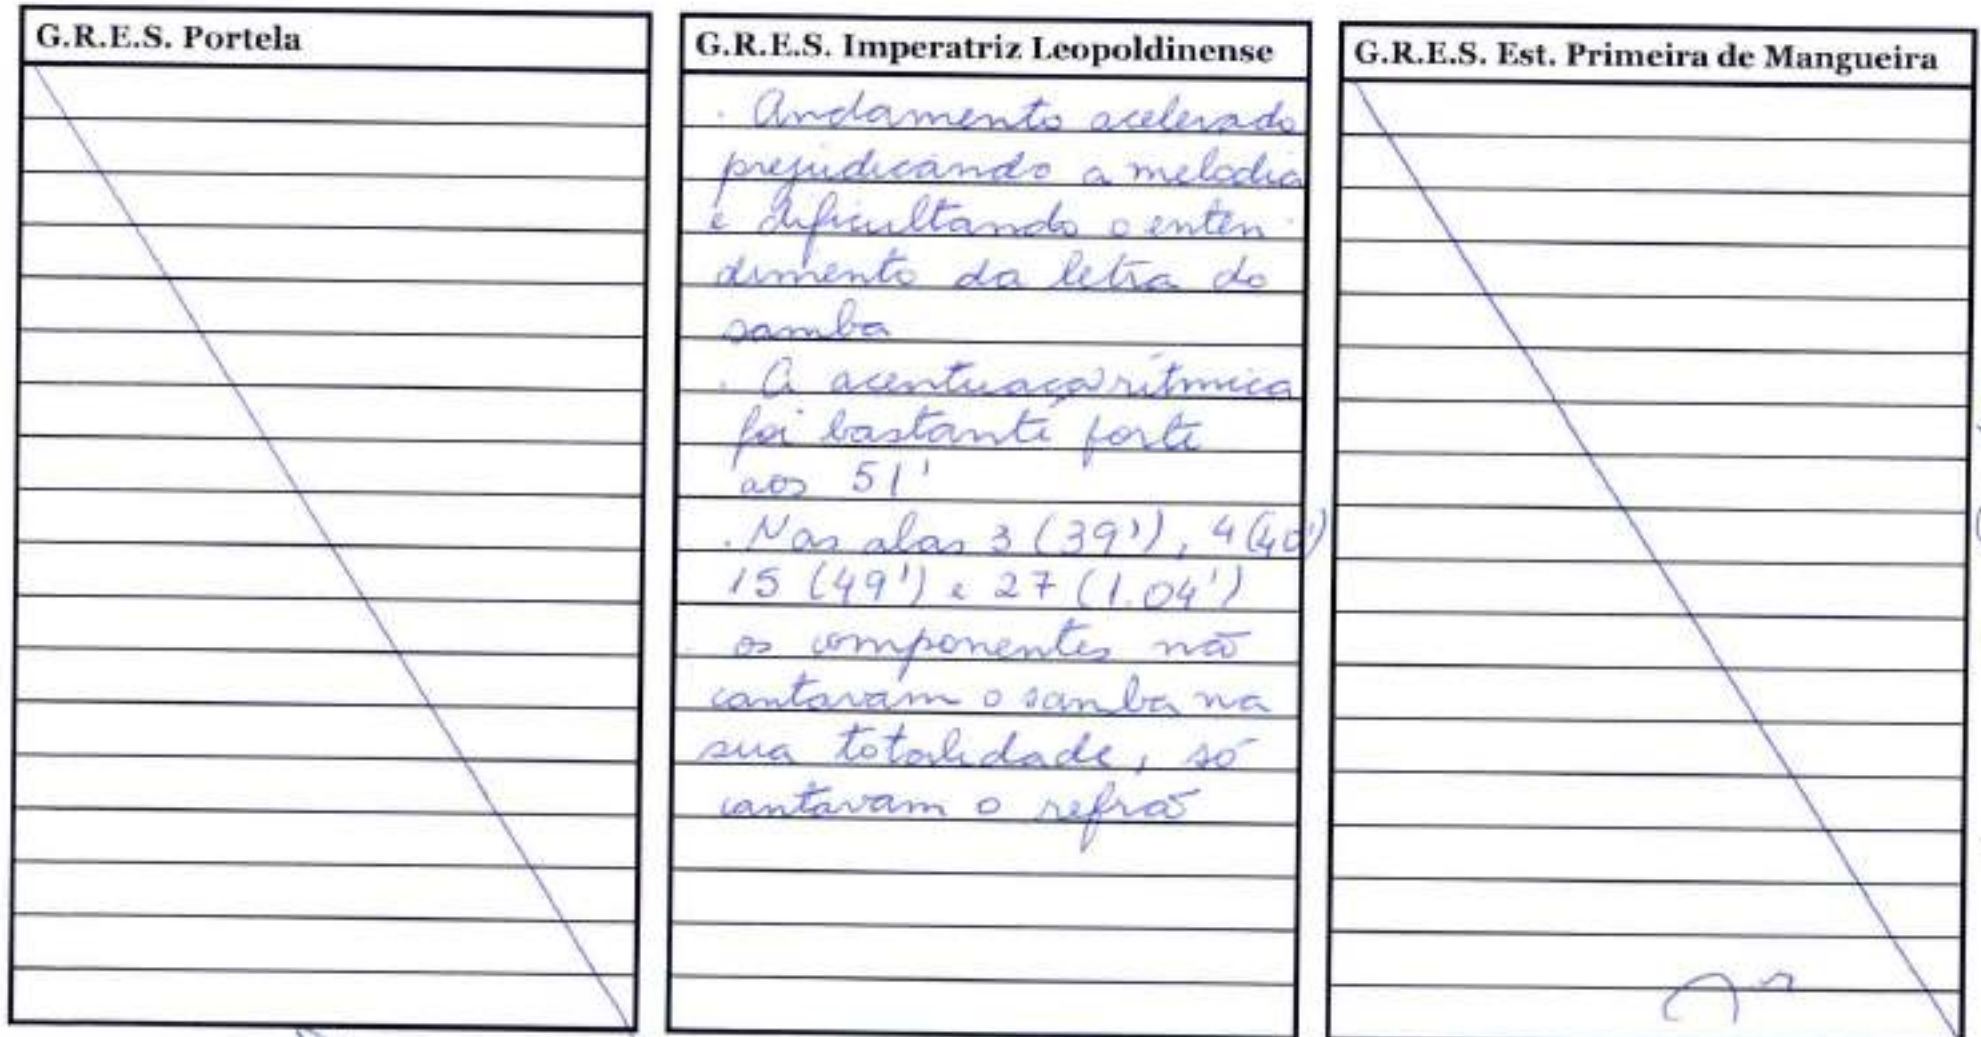 G.R.E.S. Portela
G.R.E.S. Imperatriz Leopoldinense
. Andamento acelerado
prejudicando a melodia
e dificultando o enten
dimento da letra do
samba
. A acentuaçã rítmica
foi bastante forte
aos 51'
. Nas alas 3 (39'), 4 (40')
15 (49') e 27 (1.04')
os componentes nã
cantavam o samba na
sua totalidade, só
cantavam o refrã
G.R.E.S. Est. Primeira de Mangueira